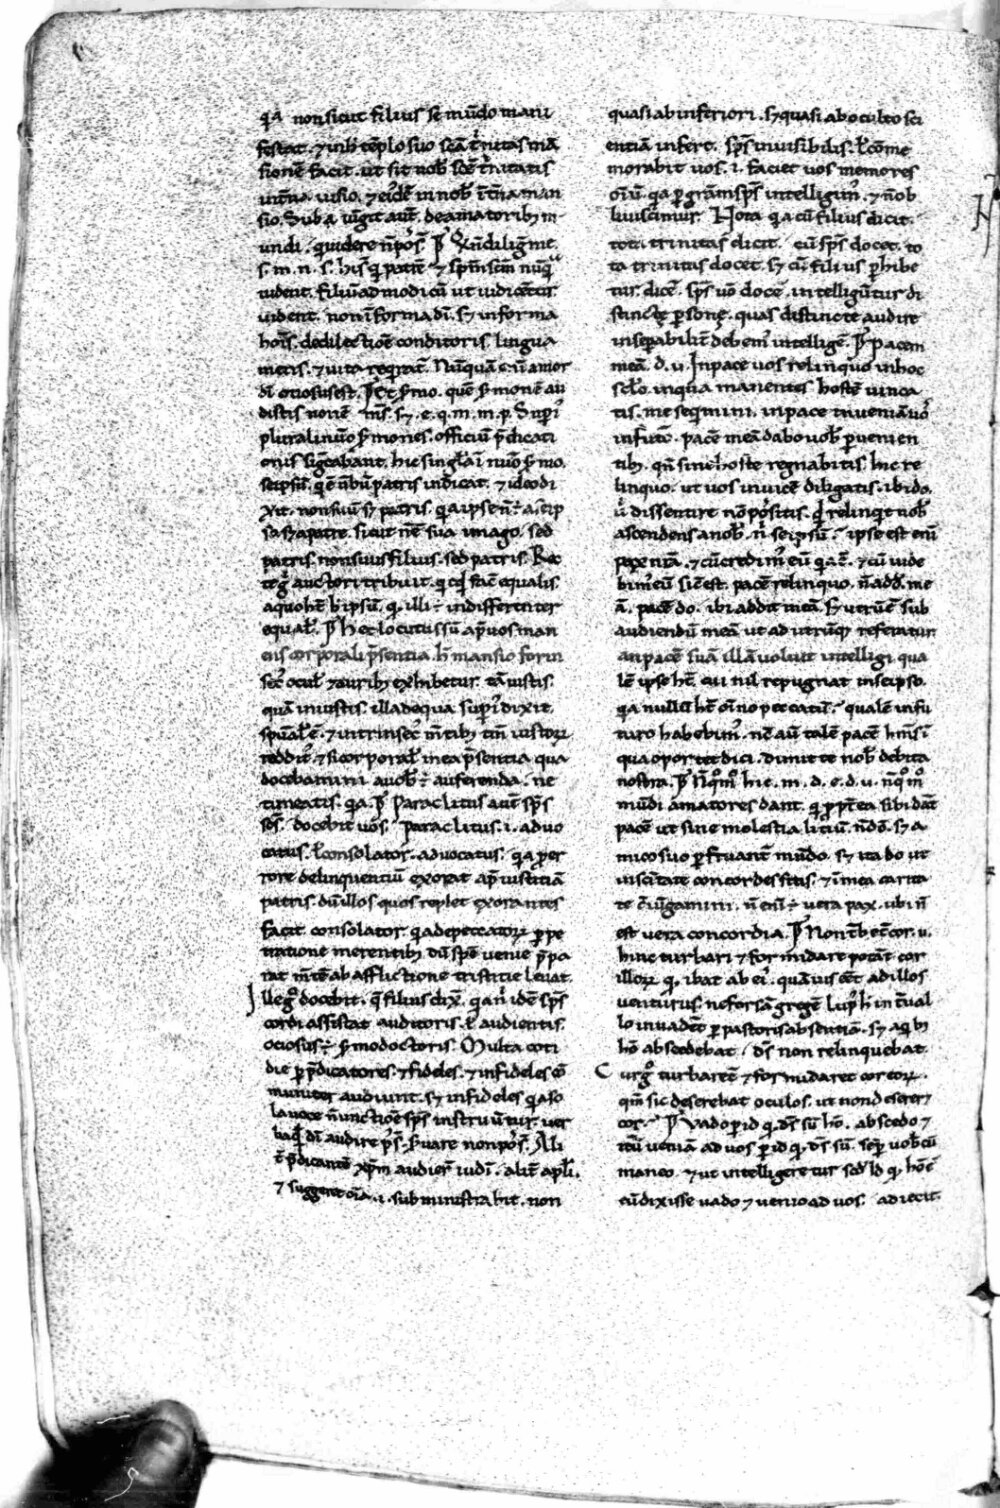 q̄a non sicut filius se mūdo mani
festat. ⁊ in his tēplo suo scā trinitas mā
sionē facit. ut sit nob̄ scē trinitatis
int̄na uisio. ⁊ eidē in nob̄ et̄na man
sio. aut̄ de amatorib; m
undi. quidere n̄ pos̄. Qui n̄ diligit me
s. m. n. s. his ⁊ sp̄m sc̄m nūq̄
uident. filiū ad modicū ut iudicētur
uident. non ī forma dī. s; in forma
hois̄. de dilectiōe conditoris. lingua
mens. ⁊ uita reqirat̄. Nūquā ē amor
dī otiosus est. Et sermo. quē au
distis non ē m̄s s; e. q. m. m. p. Supi
plural in uō s̄mones. officiū p̄dicati
onis. hic singlar in uō s̄mo.
seipsū. q̄ ē ubū patris indicat. ⁊ ideo di
xit. non suū s; patris. q̄a ipse n̄ ÷ a seip
so s; a patre. sicut n̄ ē sua imago. sed
patris. non suus filius. sed patris. Rec
te ḡ auctori tribuit. quicq̄d facit equalis.
a quo h̄t h̄ ipsū. q. illi ÷ indifferenter
equal̄. Hec locutus sū ap̄ uos man
ens corporali p̄sentia. h̄ mansio forin
sec̄ ocul̄ ⁊ aurib; exhibetur. tā iustis.
quā iniustis. illa de qua sup̄ dixit.
sp̄ual̄ ē. ⁊ intrinsec̄ m̄tib; tm̄ iustor;
reddit̄. ⁊ si corporal̄ mea p̄sentia qua
docebamini a uob̄ ÷ auferenda. ne
timeatis. q̄a Paraclitus aut̄ sp̄s
sc̄s. docebit uos. Paraclitus. i. aduo
catus. ł consolator. aduocatus. q̄a p̄ er
rore delinquentiū exorat ap̄ iustitiā
patris. dū illos quos replet exorantes
facit. consolator q̄a de peccator; p̄pe
tratione merentib; dū spē uenie p̄pa
rat m̄tē ab afflictione tristitie leuat.
Ille ḡ docebit. q̄ filius dix̄. q̄a n̄ idē sp̄s
cordi assistat auditoris. ł audientis.
ociosus ÷ s̄mo doctoris. Multa coti
die p̄ p̄dicatores. ⁊ fideles. ⁊ infideles cō
muniter audiunt. s; infideles q̄a so
la uoce n̄ unctiōe sp̄s instruūtur. uer
ba q̄dē dī audire p̄s̄. s̄uare non pos̄. Ali
t̄ p̄dicantē xp̄m audier̄ iudi. alit̄ ap̄li.
⁊ suggeret oīa. i. subministrabit. non
quasi ab inferiori. s; quasi ab occulto sci
entiā infert. sp̄s inuisibilis. ł cōme
morabit uos. i. faciet uos memores
oīū. q̄a p̄ grām sp̄s intelligim̄. ⁊ n̄ ob
liuiscimur. Nota q̄a cū filius dicit.
tota trinitas dicit. cū sp̄s docet. to
ta trinitas docet. s; cū filius p̄hibe
tur dicē. sp̄s uō docē. intelligūtur di
stincte p̄sone. quas distincte audire
insep̄abilit̄ debem̄ intellige. Pacem
meā. d. u. In pace uos relinquo in hoc
sc̄lo. in qua manentes hostē uinca
tis. me seqmini. in pace inueniā uos
in futō. pacē meā dabo uob̄ p̄uenien
tib; qn̄ sine hoste regnabitis. hic re
linquo. ut uos inuicē diligatis. ibi do.
u dissentire nō pōsitis. relinqt nob̄
ascendens a nob̄. n̄ seipsū. ipse est enī
pax nrā. ⁊ cū credim̄ eū q̄a ÷. ⁊ cū uide
bim̄ eū sic est. pacē relinquo. n̄ add. me
ā. pacē do. ibi addit meā. s; utrūē sub
audiendū meā ut ad utrūq; referatur.
an pacē suā illā uoluit intelligi qua
lē ipse h̄t. cui nil repugnat in seipso.
q̄a nullū h̄t oīno peccatū. qualē in fu
turo habebim̄. nē aut̄ talē pacē
qua oportet dici. dimite nob̄ debita
nostra. Nō qm̄o hic. m. d. e. d. u. n̄ qm̄o
mūdi amatores dant. q̄ ppt̄ea sibi dāt
pacē ut sine molestia litiū. n̄ dō. s; a
mico suo p̄fruant̄ mūdo. s; ita do ut
in scītate concordes sitis. ⁊ ī mea carita
te ciūgamini. n̄ enī ÷ uera pax. ubi n̄
est uera concordia. Non t̄b et̄ cor. u.
hinc turbari ⁊ formidare potāt cor
illor; q. ibat ab ei. quāuis eēt ad illos
uenturus. ne forsā gregē lup h̄ int̄ual
lo inuadēt p̄ pastoris absentiā. s; a q̄ b;
hō abscedebat. ds̄ non relinquebat.
Cur ḡ turbaret̄ ⁊ formidaret cor eor;.
qm̄ sic deserebat oculos. ut non desereret
cor. Vado p̄ id q̄ ds̄ sū hō. abscedo ⁊
itū ueniā ad uos p̄ id q̄ ds̄ sū. semp̄ uob̄cū
maneo. ⁊ ut intelligeretur scdm̄ id q̄ hō ē
cū dixisse uado ⁊ uenio ad uos. adiecit.